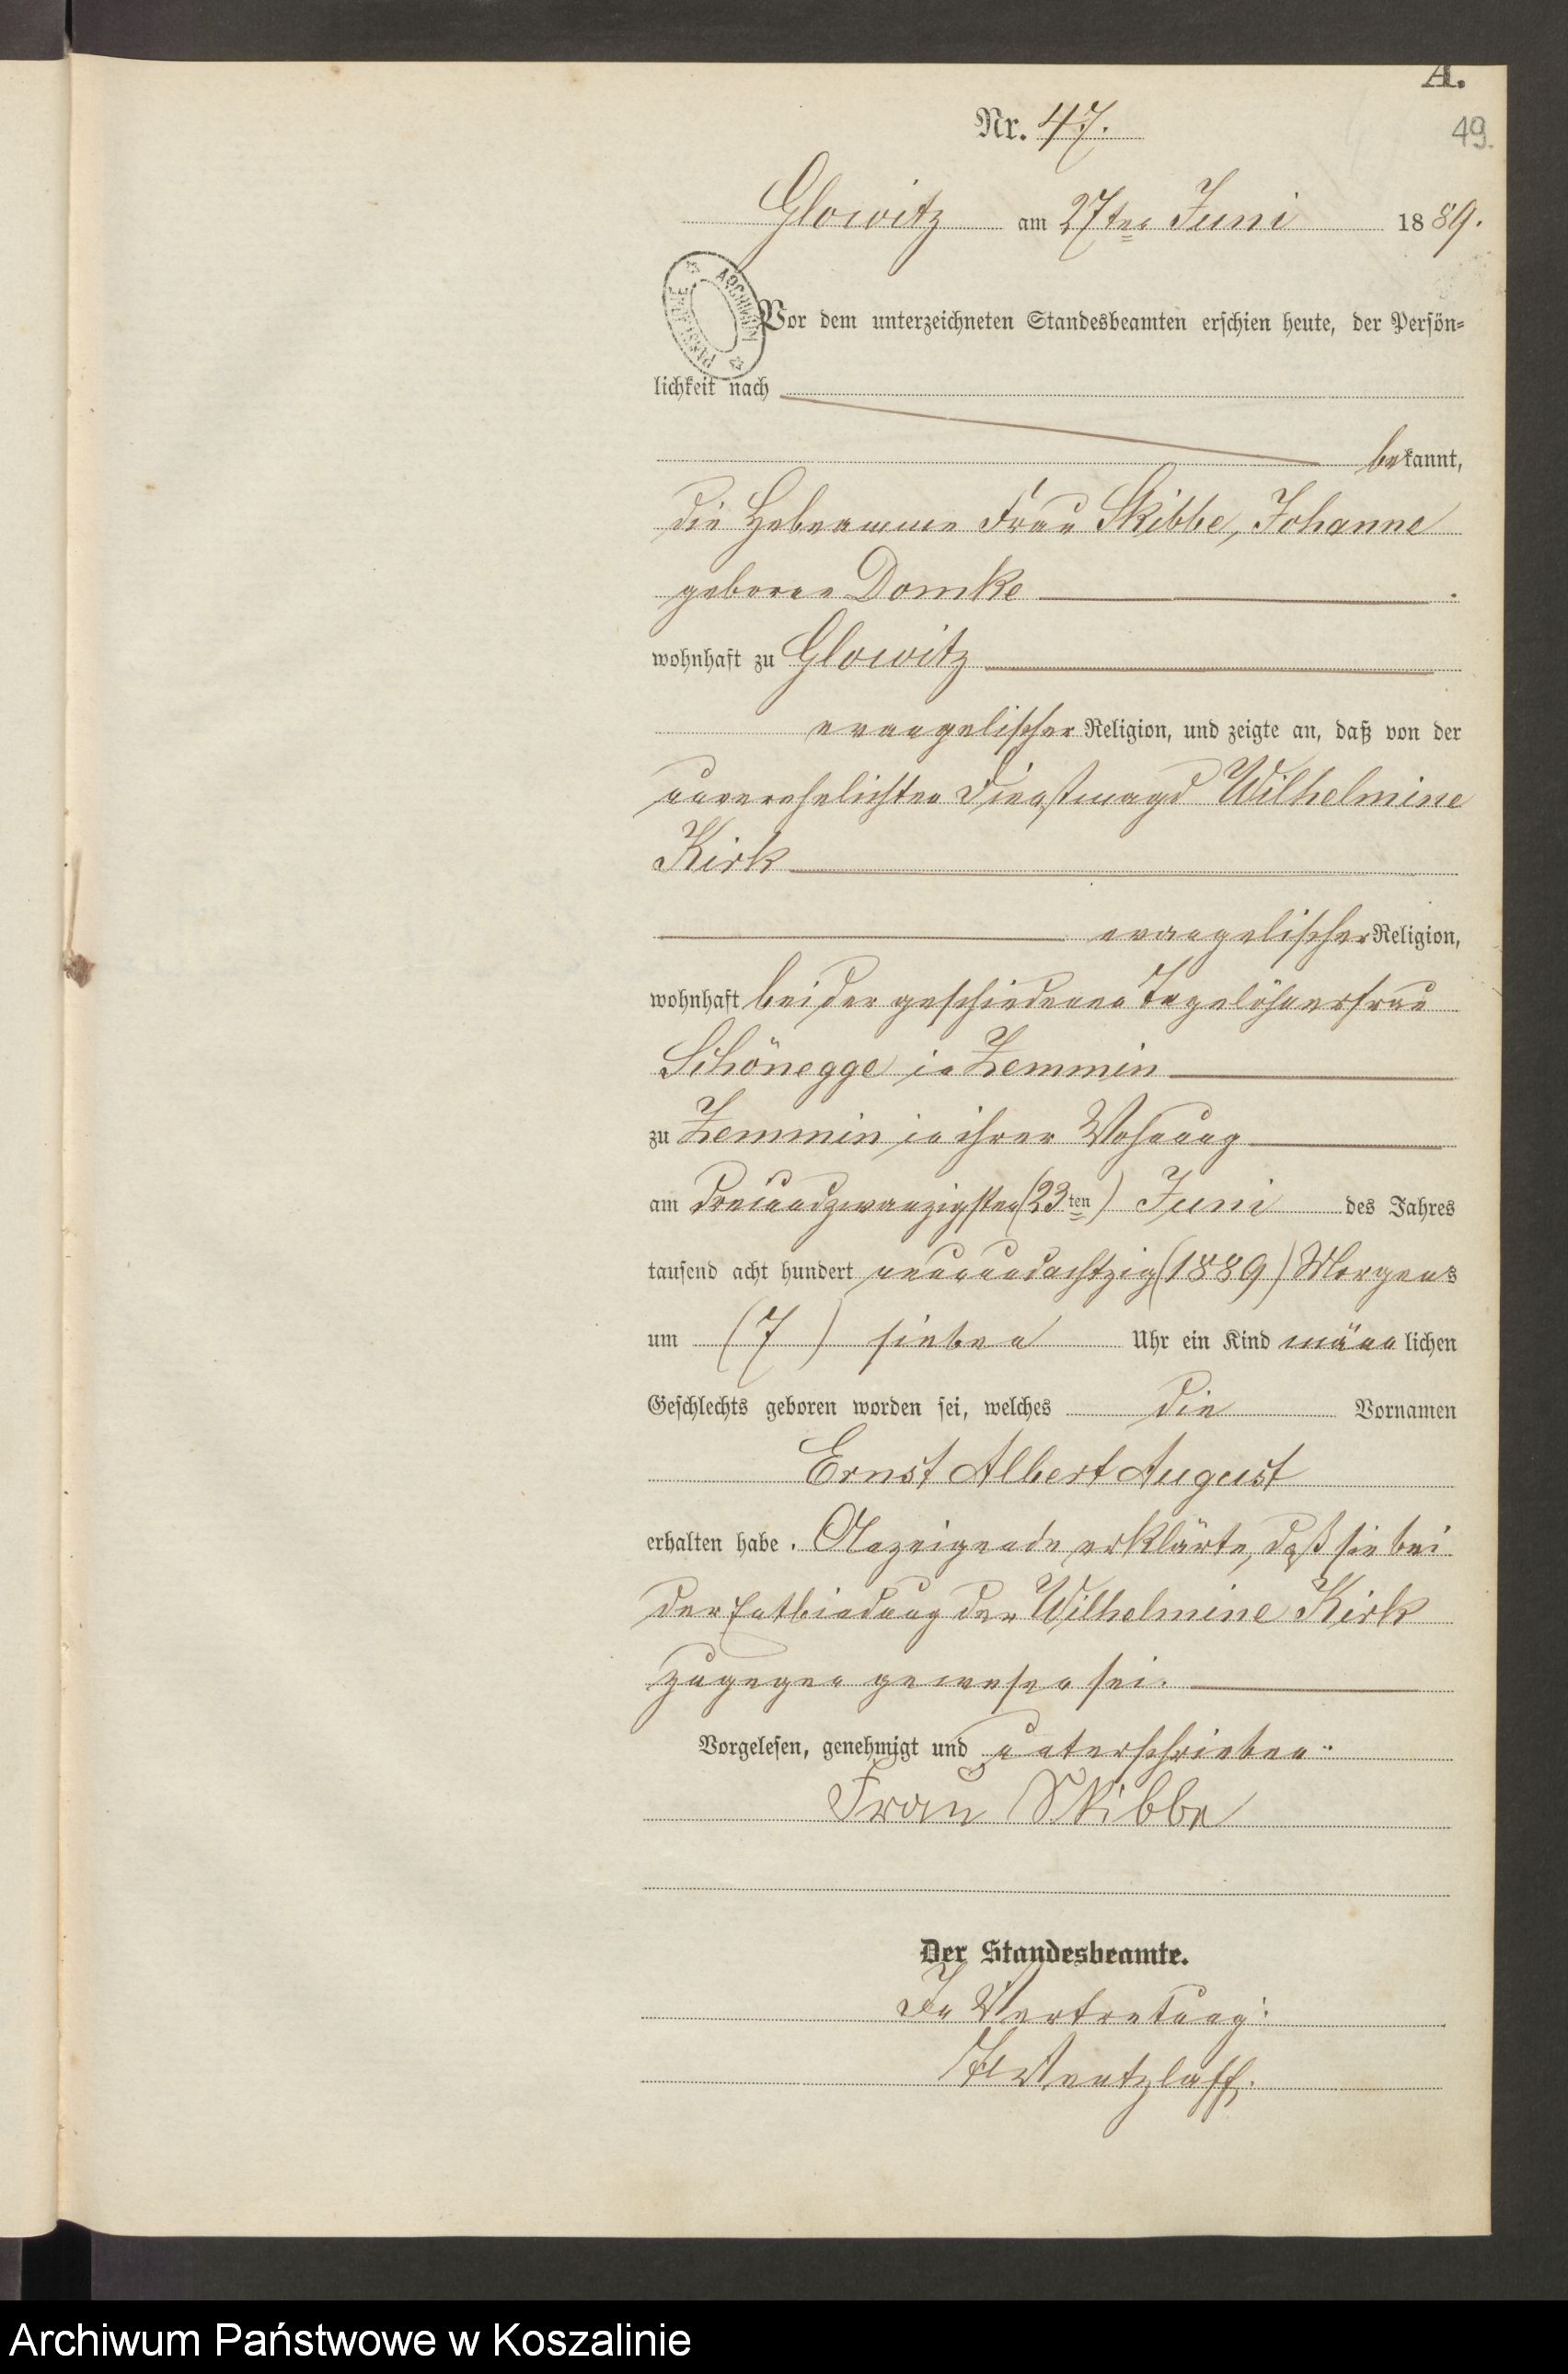 A.
Nr. 47.
49.
Glowitz am 27ten Juni 1889.
ARCHIWUM PAŃSTWOWE
Vor dem unterzeichneten Standesbeamten erschien heute, der Persön=
lichkeit nach
bekannt,
die Hebeamme Frau Skibbe, Johanne
geborne Domke
wohnhaft zu Glowitz
evangelischer Religion, und zeigte an, daß von der
unverehelichten Dienstmagd Wilhelmine
Kirk
evangelischer Religion,
wohnhaft bei der geschiedenen Tagelöhnerfrau
Schönegge in Zemmin
zu Zemmin in ihrer Wohnung
am dreiundzwanzigsten (23ten) Juni des Jahres
tausend acht hundert neunundachtzig (1889) Morgens
um (7) sieben Uhr ein Kind männlichen
Geschlechts geboren worden sei, welches die Vornamen
Ernst Albert August
erhalten habe. Anzeigende erklärte, daß sie bei
der Entbindung der Wilhelmine Kirk
zugegen gewesen sei.
Vorgelesen, genehmigt und unterschrieben.
Frau Skibbe
Der Standesbeamte.
In Vertretung:
Wentzlaff.
Archiwum Państwowe w Koszalinie